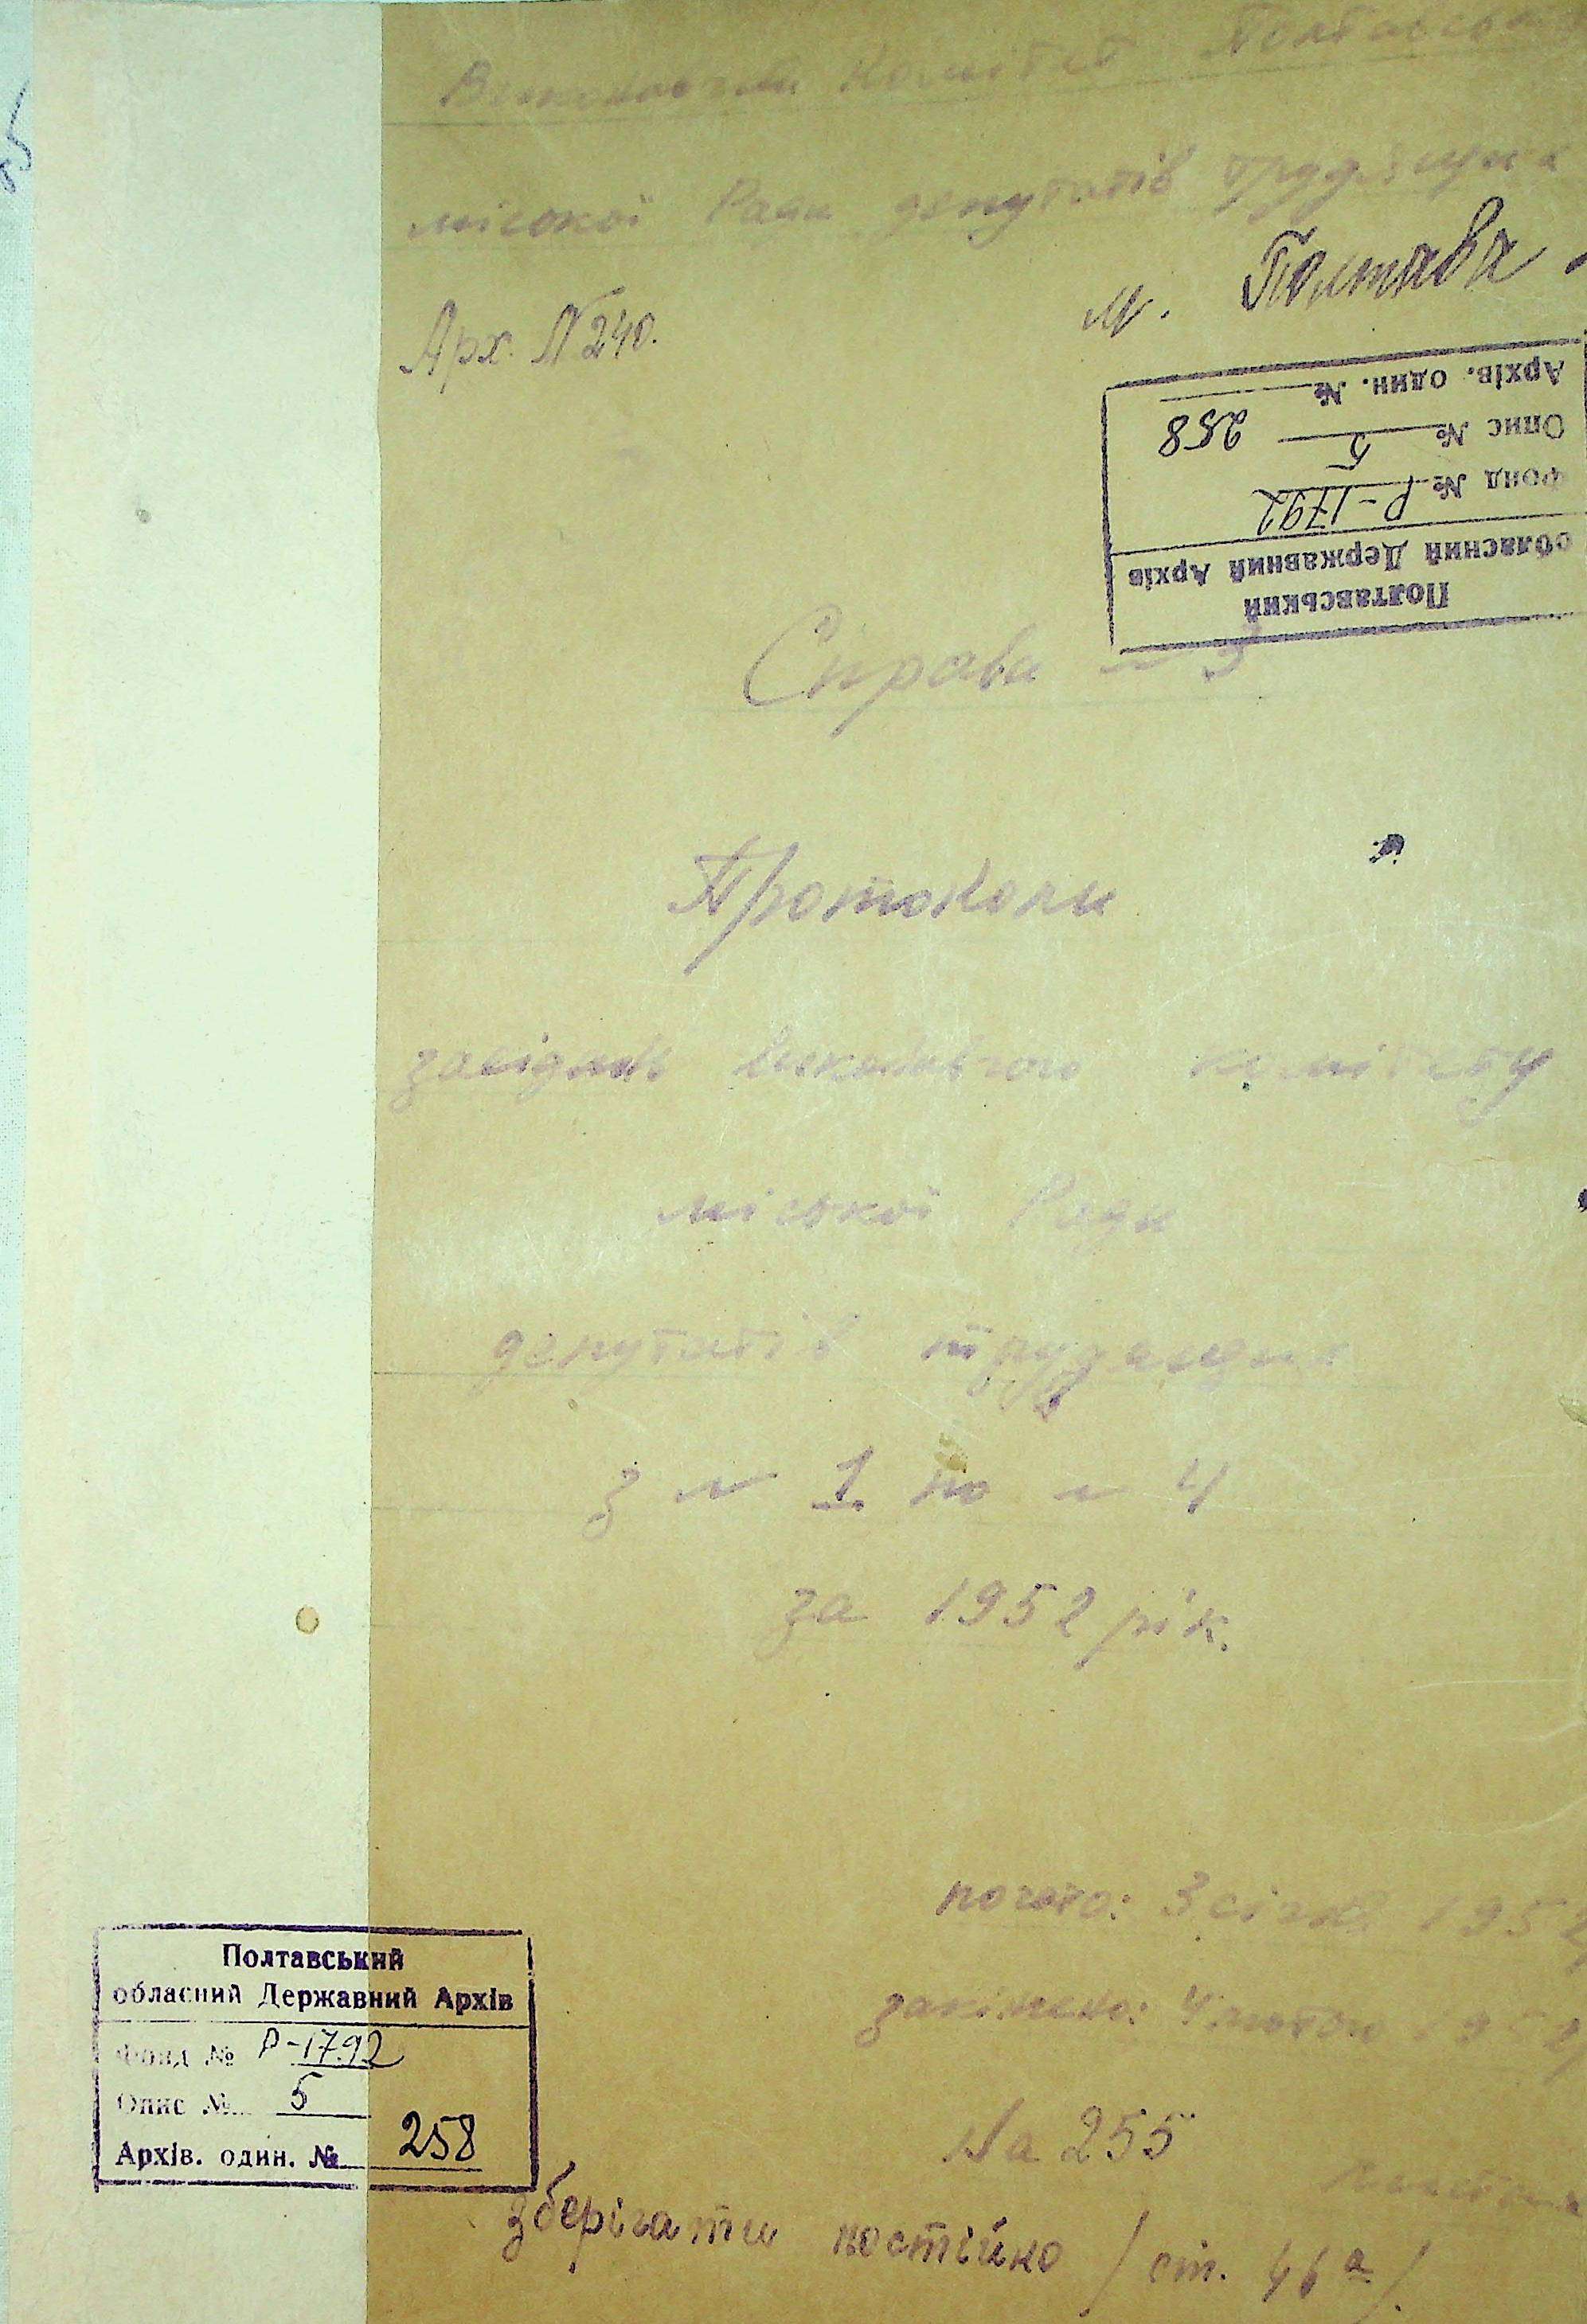 Виконавчий Комітет Полтавської
міської Ради депутатів трудящих
м. Полтава
Арх. N 240.
Полтавський
обласний Державний Архів
Фонд № Р-1792
Опис № 5
Архів. один. №
258
Справа N 3
Протоколи
засідань виконавчого комітету
міської Ради
депутатів трудящих
з N 1 по N 4
за 1952 рік.
почато: 3 січн. 1952
закінчено: 4 лютого 1952
На 255
листах
зберігати постійно / ст. 46а /.
Полтавський
обласний Державний Архів
Фонд № Р-1792
Опис № 5
Архів. один. № 258